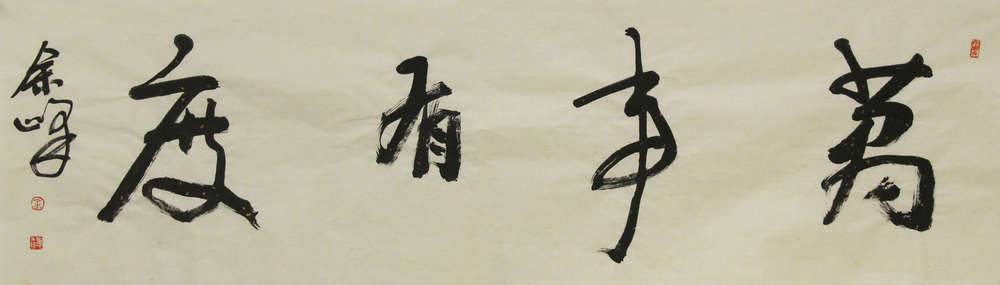 萬事有度
余峰